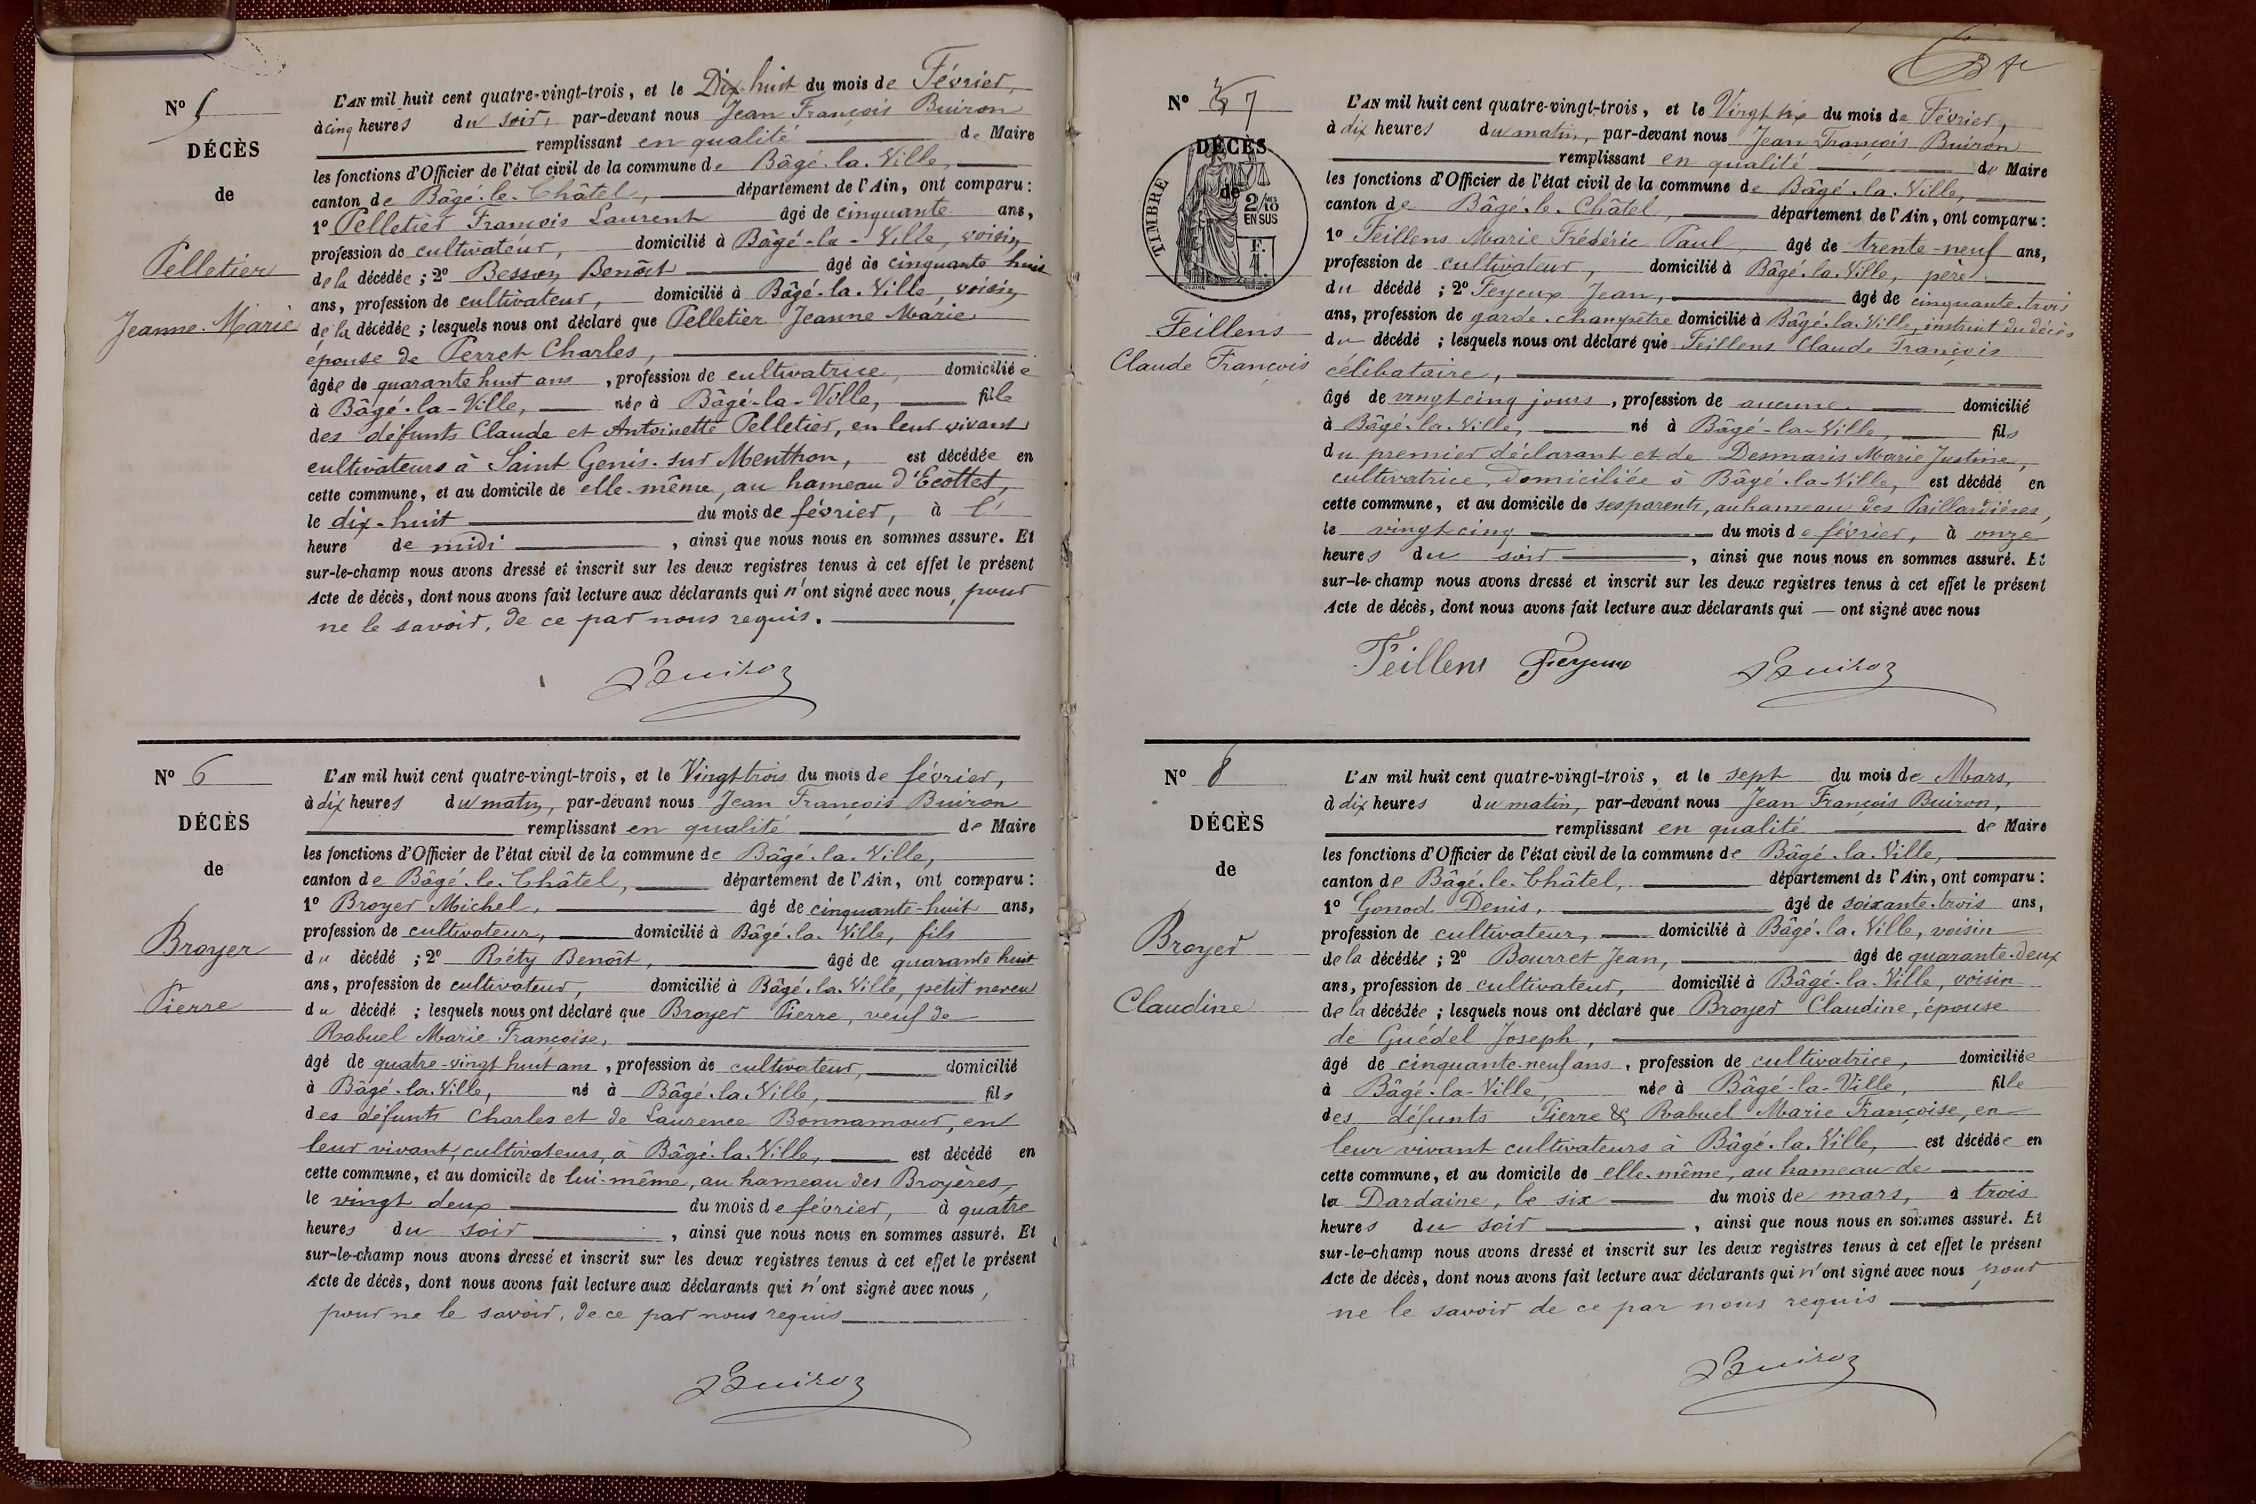 N° 5
DÉCÈS
de
Pelletier
Jeanne Marie
L'AN mil huit cent quatre-vingt-trois, et le Dix-huit du mois de Février,
à cinq heures du soir, par-devant nous Jean François Buiron
remplissant en qualité de Maire
les fonctions d'Officier de l'état civil de la commune de Bâgé-la-Ville,
canton de Bâgé-le-Châtel, département de l'Ain, ont comparu :
1° Pelletier François Laurent âgé de cinquante ans,
profession de cultivateur, domicilié à Bâgé-la-Ville, voisin
de la décédée ; 2° Besson Benoît âgé de cinquante huit
ans, profession de cultivateur, domicilié à Bâgé-la-Ville, voisin
de la décédée ; lesquels nous ont déclaré que Pelletier Jeanne Marie
épouse de Perret Charles,
âgée de quarante huit ans, profession de cultivatrice, domiciliée
à Bâgé-la-Ville, née à Bâgé-la-Ville, fille
des défunts Claude et Antoinette Pelletier, en leur vivant
cultivateurs à Saint Genis-sur Menthon, est décédée en
cette commune, et au domicile de elle-même, au hameau d'Ecottet,
le dix-huit du mois de février, à l'
heure de midi, ainsi que nous nous en sommes assuré. Et
sur-le-champ nous avons dressé et inscrit sur les deux registres tenus à cet effet le présent
Acte de décès, dont nous avons fait lecture aux déclarants qui n'ont signé avec nous, pour
ne le savoir, de ce par nous requis.
Buiron
N° 6
DÉCÈS
de
Broyer
Pierre
L'AN mil huit cent quatre-vingt-trois, et le Vingt trois du mois de février,
à dix heures du matin, par-devant nous Jean François Buiron
remplissant en qualité de Maire
les fonctions d'Officier de l'état civil de la commune de Bâgé-la-Ville,
canton de Bâgé-le-Châtel, département de l'Ain, ont comparu :
1° Broyer Michel, âgé de cinquante-huit ans,
profession de cultivateur, domicilié à Bâgé-la-Ville, fils
du décédé ; 2° Réty Benoît, âgé de quarante huit
ans, profession de cultivateur, domicilié à Bâgé-la-Ville, petit neveu
du décédé ; lesquels nous ont déclaré que Broyer Pierre, veuf de
Rabuel Marie Françoise,
âgé de quatre-vingt huit ans, profession de cultivateur, domicilié
à Bâgé-la-Ville, né à Bâgé-la-Ville, fils
des défunts Charles et de Laurence Bonnamour, en
leur vivant, cultivateurs, à Bâgé-la-Ville, est décédé en
cette commune, et au domicile de lui-même, au hameau des Broyères,
le vingt deux du mois de février, à quatre
heures du soir, ainsi que nous nous en sommes assuré. Et
sur-le-champ nous avons dressé et inscrit sur les deux registres tenus à cet effet le présent
Acte de décès, dont nous avons fait lecture aux déclarants qui n'ont signé avec nous,
pour ne le savoir, de ce par nous requis
Buiron
N° 7
DÉCÈS
de
TIMBRE
2/10
EN SUS
Feillens
Claude François
L'AN mil huit cent quatre-vingt-trois, et le Vingt six du mois de Février,
à dix heures du matin, par-devant nous Jean François Buiron
remplissant en qualité de Maire
les fonctions d'Officier de l'état civil de la commune de Bâgé-la-Ville,
canton de Bâgé-le-Châtel, département de l'Ain, ont comparu :
1° Feillens Marie Frédéric Paul âgé de trente-neuf ans,
profession de cultivateur, domicilié à Bâgé-la-Ville, père
du décédé ; 2° Feyeux Jean, âgé de cinquante-trois
ans, profession de garde-champêtre domicilié à Bâgé-la-Ville, instruit du décès
du décédé ; lesquels nous ont déclaré que Feillens Claude François
célibataire,
âgé de vingt cinq jours, profession de aucune domicilié
à Bâgé-la-Ville, né à Bâgé-la-Ville, fils
du premier déclarant et de Desmaris Marie Justine,
cultivatrice, domiciliée à Bâgé-la-Ville, est décédé en
cette commune, et au domicile de ses parents, au hameau des Paillardières,
le vingt cinq du mois de février, à onze
heures du soir, ainsi que nous nous en sommes assuré. Et
sur-le-champ nous avons dressé et inscrit sur les deux registres tenus à cet effet le présent
Acte de décès, dont nous avons fait lecture aux déclarants qui — ont signé avec nous
Feillens Feyeux Buiron
N° 8
DÉCÈS
de
Broyer
Claudine
L'AN mil huit cent quatre-vingt-trois, et le sept du mois de Mars,
à dix heures du matin, par-devant nous Jean François Buiron,
remplissant en qualité de Maire
les fonctions d'Officier de l'état civil de la commune de Bâgé-la-Ville,
canton de Bâgé-le-Châtel, département de l'Ain, ont comparu :
1° Gonod Denis, âgé de soixante-trois ans,
profession de cultivateur, domicilié à Bâgé-la-Ville, voisin
de la décédée ; 2° Bourret Jean, âgé de quarante-deux
ans, profession de cultivateur, domicilié à Bâgé-la-Ville, voisin
de la décédée ; lesquels nous ont déclaré que Broyer Claudine, épouse
de Guédel Joseph,
âgé de cinquante-neuf ans, profession de cultivatrice, domiciliée
à Bâgé-la-Ville née à Bâgé-la-Ville, fille
des défunts Pierre & Rabuel Marie Françoise, en
leur vivant cultivateurs à Bâgé-la-Ville, est décédée en
cette commune, et au domicile de elle-même, au hameau de
la Dardaine, le six du mois de mars, à trois
heures du soir, ainsi que nous nous en sommes assuré. Et
sur-le-champ nous avons dressé et inscrit sur les deux registres tenus à cet effet le présent
Acte de décès, dont nous avons fait lecture aux déclarants qui n'ont signé avec nous pour
ne le savoir de ce par nous requis
Buiron